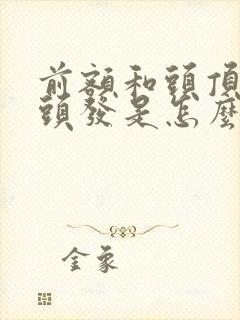 前額和頭頂
頭發是怎麼
金象